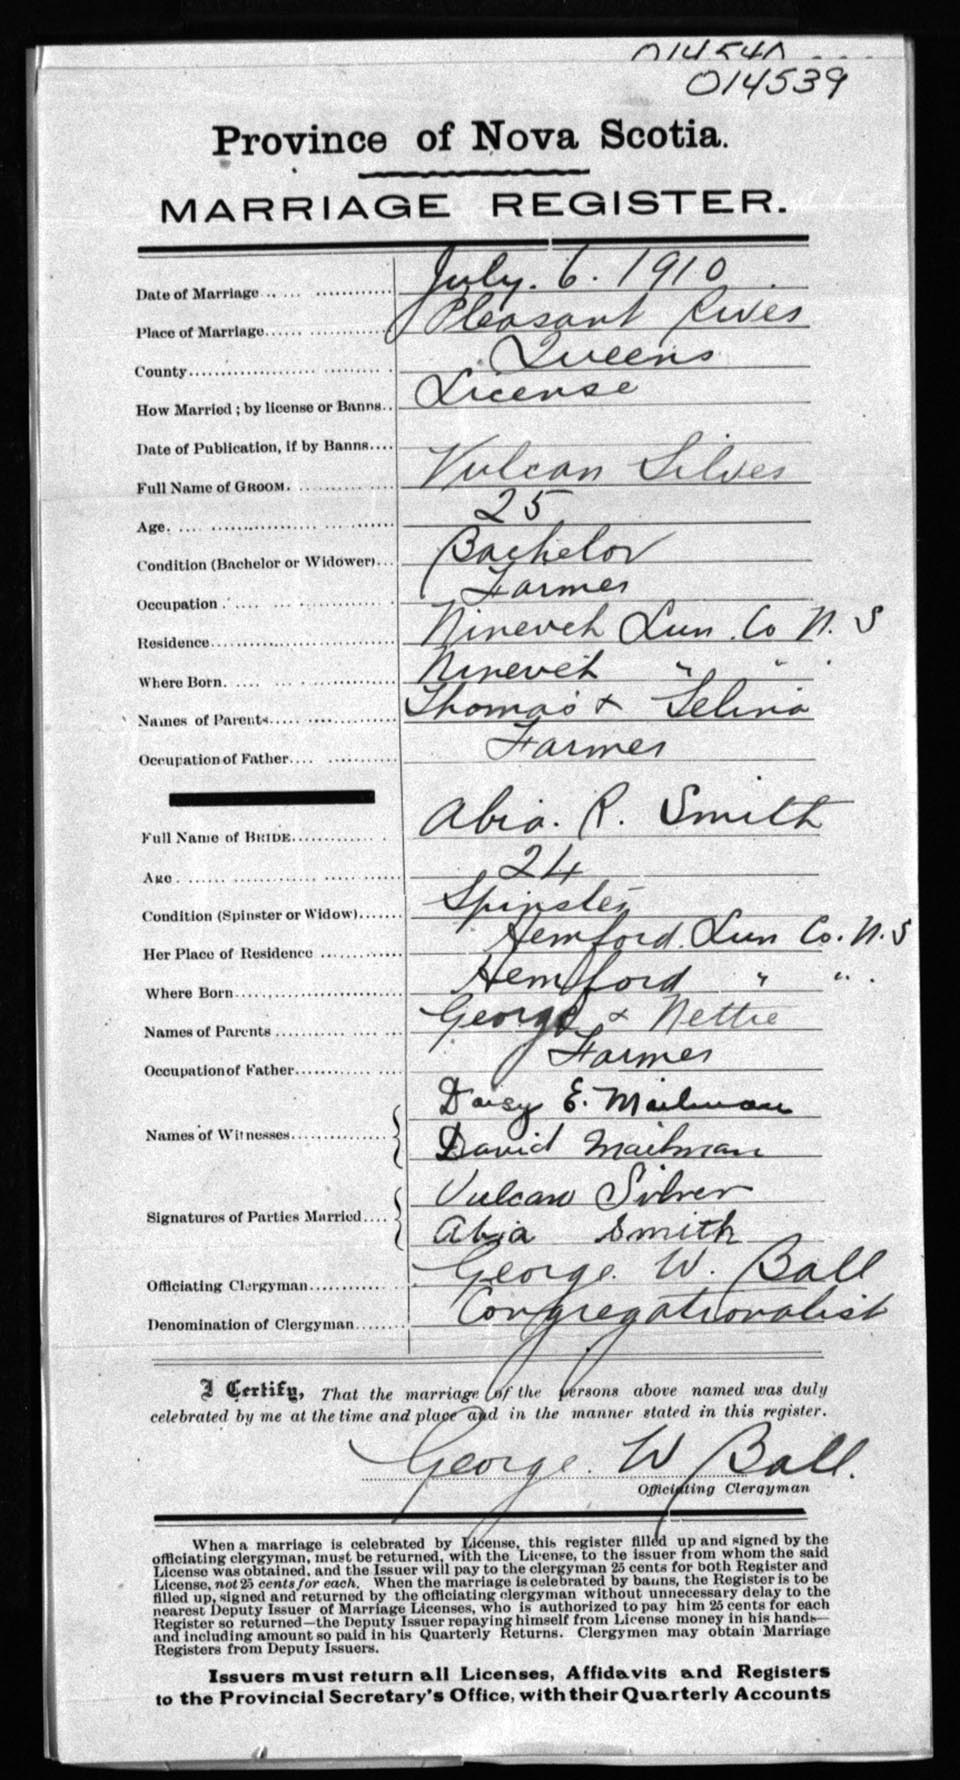 014540
014539
Province of Nova Scotia.
MARRIAGE REGISTER.
Date of Marriage July. 6. 1910
Place of Marriage Pleasant River
County Queens
How Married; by license or Banns License
Date of Publication, if by Banns
Full Name of GROOM. Vulcan Silver
Age. 25
Condition (Bachelor or Widower) Bachelor
Occupation Farmer
Residence Nineveh Lun. Co N. S
Where Born. Nineveh " " .
Names of Parents Thomas & Selina
Occupation of Father Farmer
Full Name of BRIDE Abia. R. Smith
Age 24
Condition (Spinster or Widow) Spinster
Her Place of Residence Hemford. Lun Co. N. S
Where Born Hemford " " .
Names of Parents George & Nettie
Occupation of Father Farmer
Names of Witnesses Daisy E. Mailman
David Mailman
Signatures of Parties Married Vulcan Silver
Abia Smith
Officiating Clergyman George. W. Ball
Denomination of Clergyman Congregationalist
I Certify, That the marriage of the persons above named was duly
celebrated by me at the time and place and in the manner stated in this register.
George. W Ball.
Officiating Clergyman
When a marriage is celebrated by License, this register filled up and signed by the
officiating clergyman, must be returned, with the License, to the issuer from whom the said
License was obtained, and the Issuer will pay to the clergyman 25 cents for both Register and
License, not 25 cents for each. When the marriage is celebrated by banns, the Register is to be
filled up, signed and returned by the officiating clergyman without unnecessary delay to the
nearest Deputy Issuer of Marriage Licenses, who is authorized to pay him 25 cents for each
Register so returned—the Deputy Issuer repaying himself from License money in his hands—
and including amount so paid in his Quarterly Returns. Clergymen may obtain Marriage
Registers from Deputy Issuers.
Issuers must return all Licenses, Affidavits and Registers
to the Provincial Secretary's Office, with their Quarterly Accounts